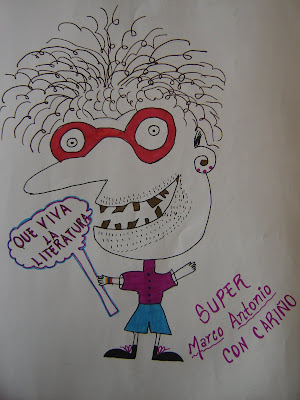 QUE VIVA
LA
LITERATURA
SUPER
Marco Antonio
CON CARIÑO